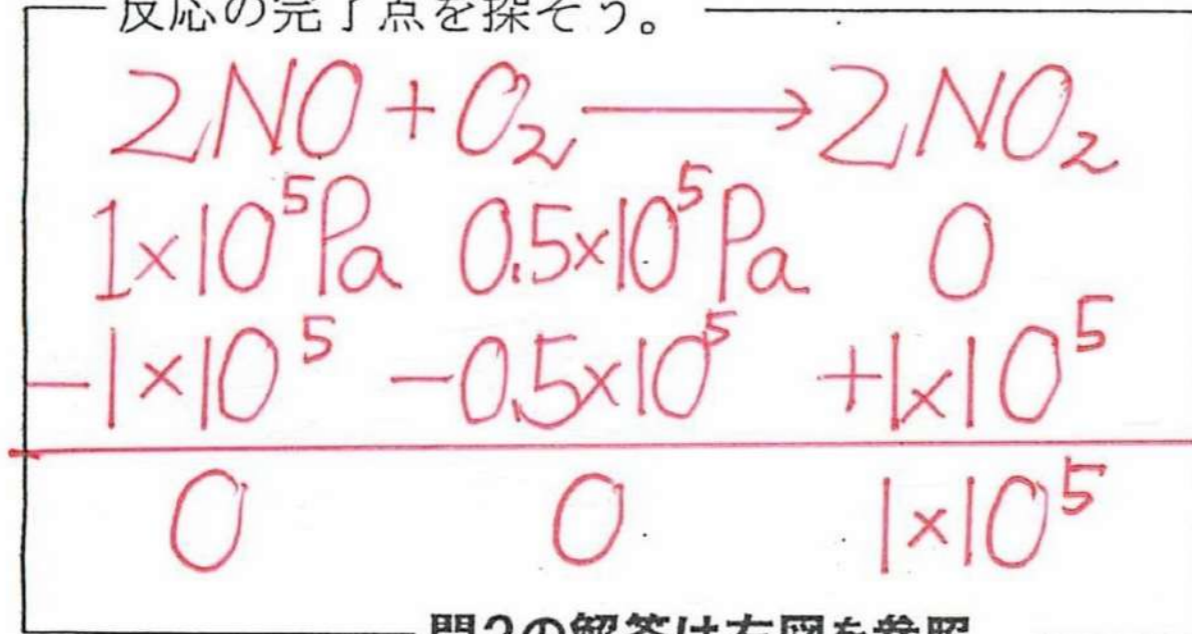 反応の完了点を探そう。
2NO + O₂ → 2NO₂
1×10⁵Pa 0.5×10⁵Pa 0
-1×10⁵ -0.5×10⁵ +1×10⁵
0 0 1×10⁵
問2の解答は右図を参照